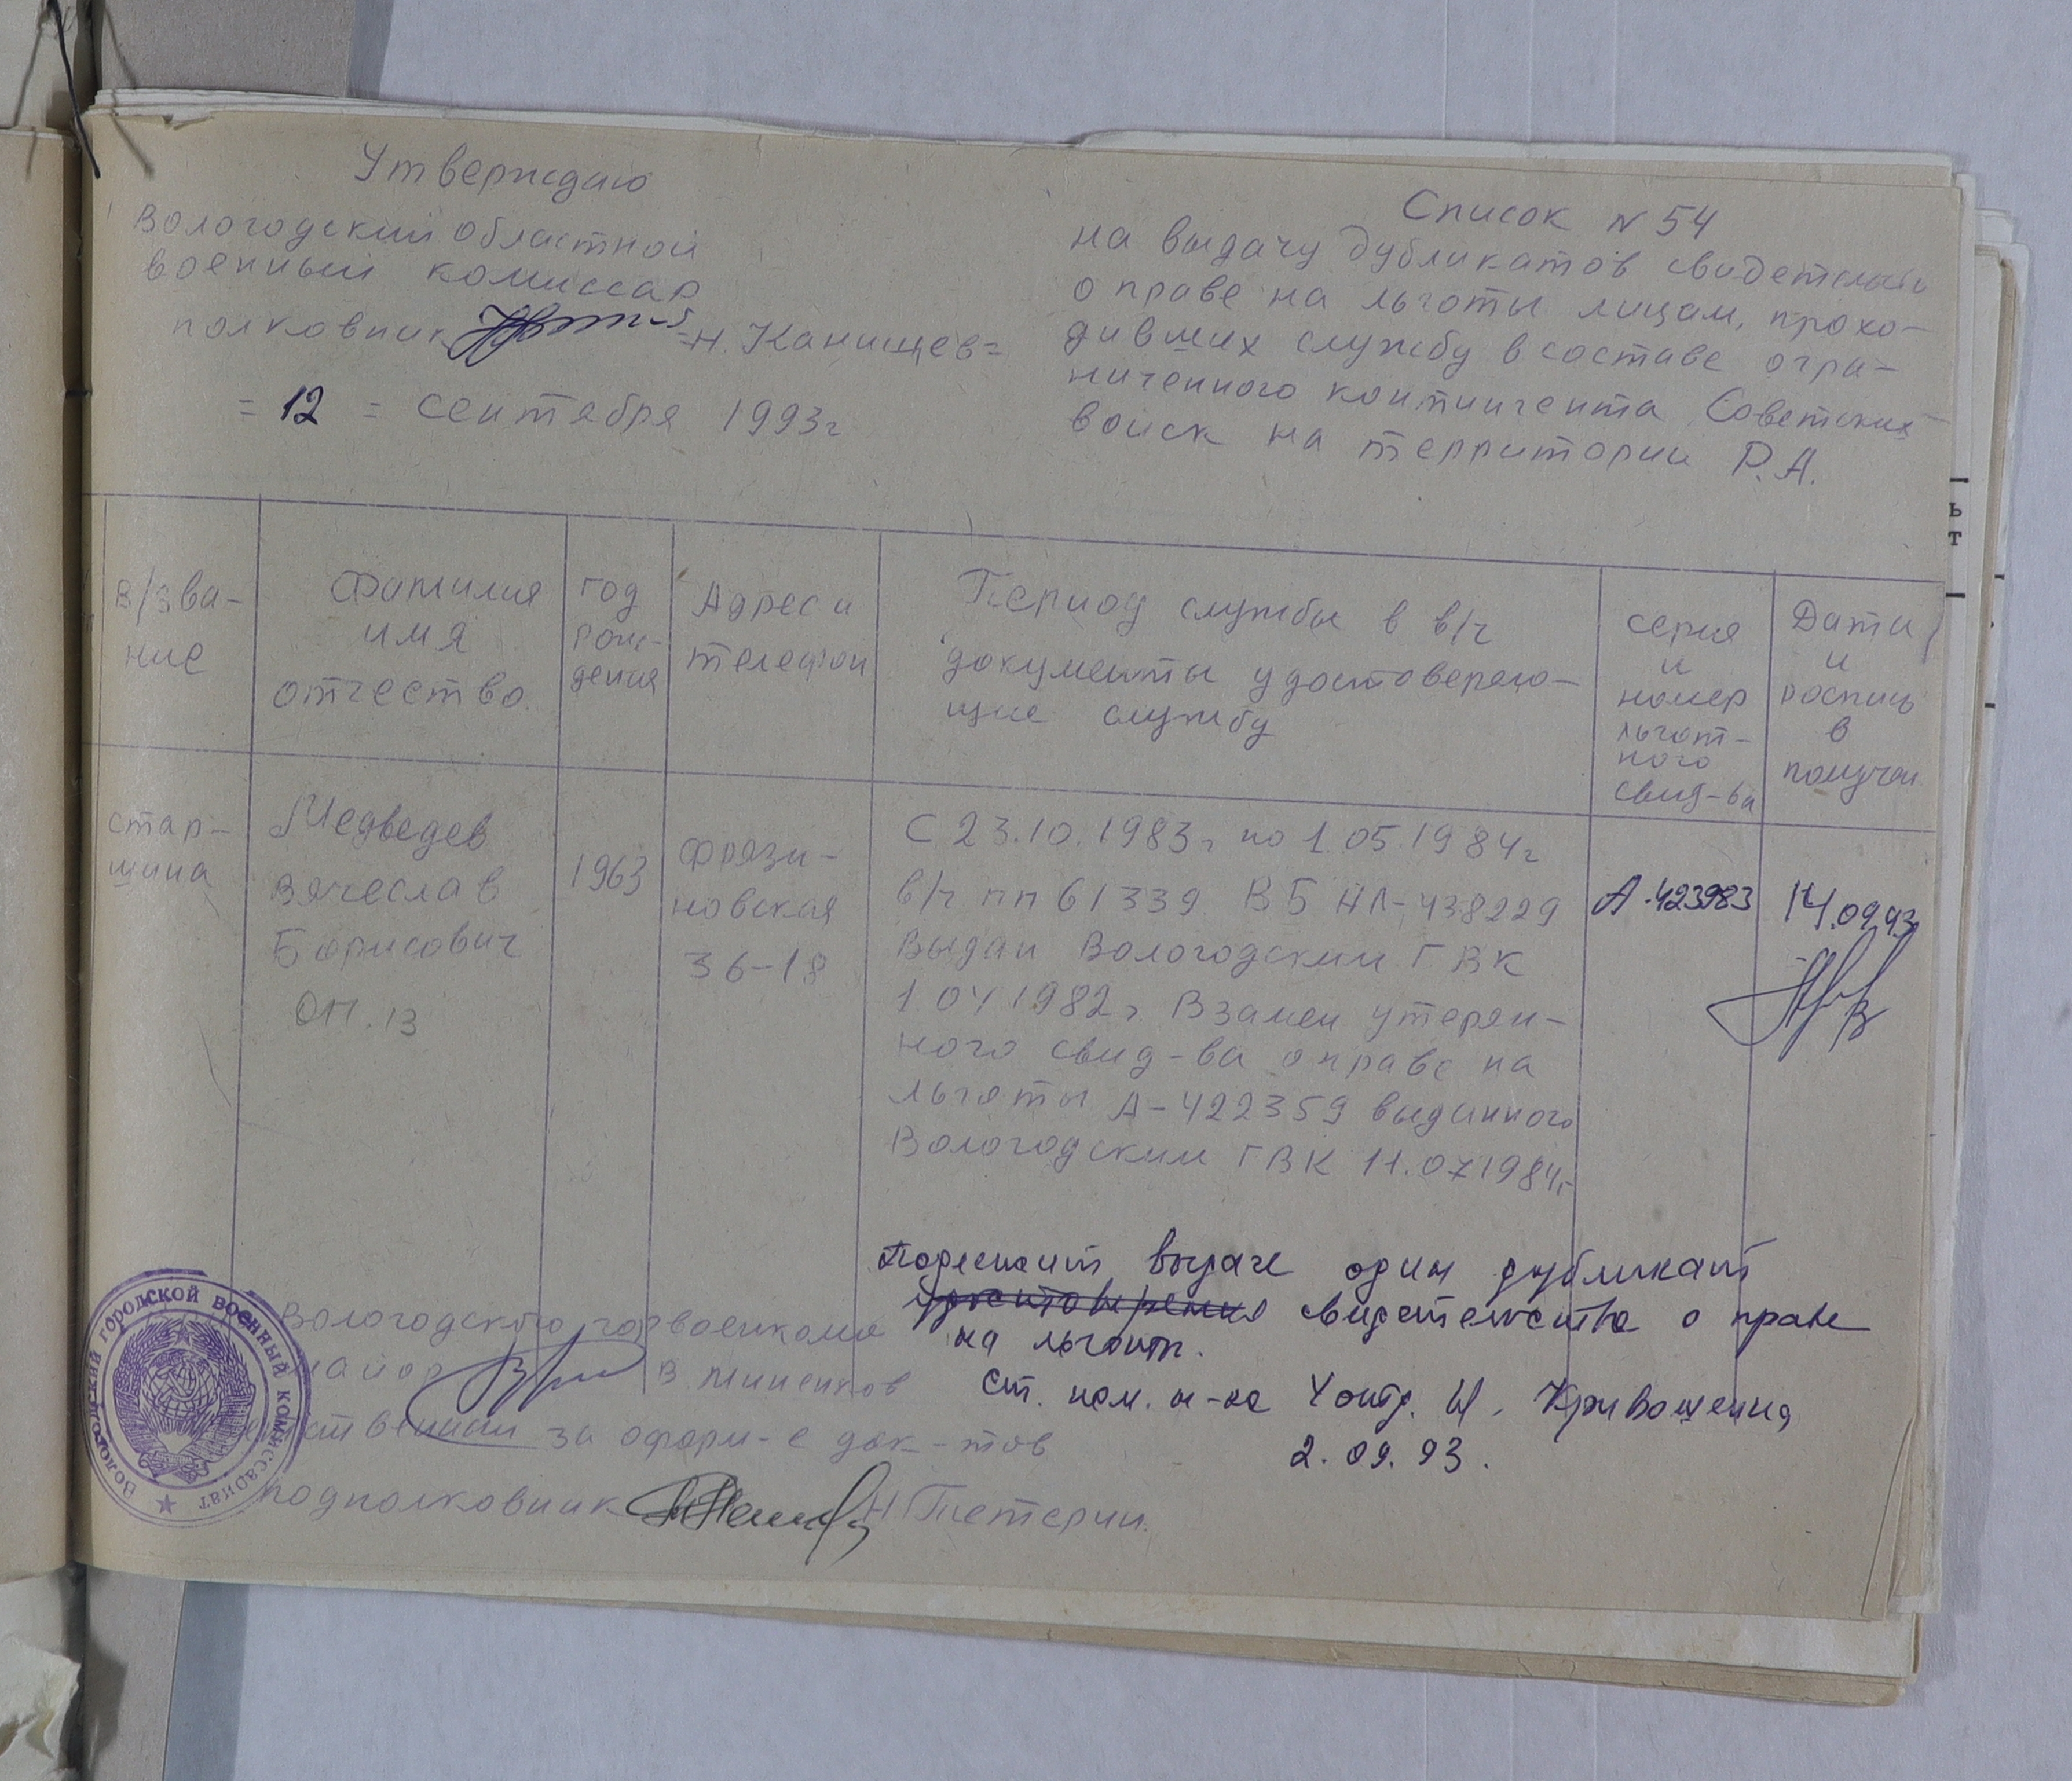 Утверждаю
Вологодский областной
военный комиссар
полковник =Н. Канищев=
= 12 = сентября 1993г
Список N 54
на выдачу дубликатов свидетельств
о праве на льготы лицам, прохо-
дивших службу в составе огра-
ниченного контингента Советских
войск на территории Р.А.
в/зва-
ние
Фамилия
имя
отчество
год
рож-
дения
Адрес и
телефон
Период службы в в/ч
документы удостоверяю-
щие службу
серия
и
номер
льгот-
ного
свид-ва
Дата
и
роспись
в
получен
стар-
шина
Медведев
Вячеслав
Борисович
ОП.13
1963
Фрязи-
новская
36-18
С 23.10.1983г по 1.05.1984г
в/ч пп 61339 ВБ НЛ-438229
Выдан Вологодским ГВК
1.04 1982г Взамен утерян-
ного свид-ва о праве на
льготы А-422359 выданного
Вологодским ГВК 11.07 1984г
А-423983
14.09.93
Подлежит выдаче один дубликат
удостоверения свидетельства о праве
на льготы.
Ст. пом. н-ка И. Кривошеина
2.09.93.
Вологодского горвоенкома
майор В. Миненков
ственный за оформ-е док-тов
подполковник Н Петерин.
Вологодский городской военный комиссариат
ь
т